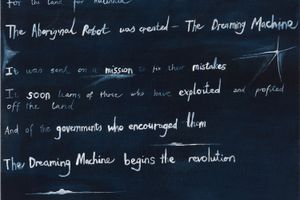 for the land for
The Aboriginal Robot was created - The Dreaming Machine
It was sent on a mission to fix their mistakes
It soon learns of those who have exploited and profited
off the land
And of the governments who encouraged them
The Dreaming Machine begins the revolution